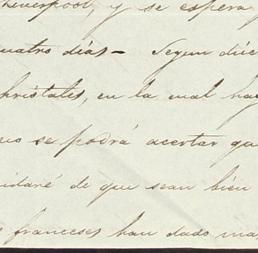 Liverpool, y se espera
cuatro días — Segun dice
christales, en la cual hay
no se podrá acertar que
cuidaré de que sean bien
franceses han dado ma